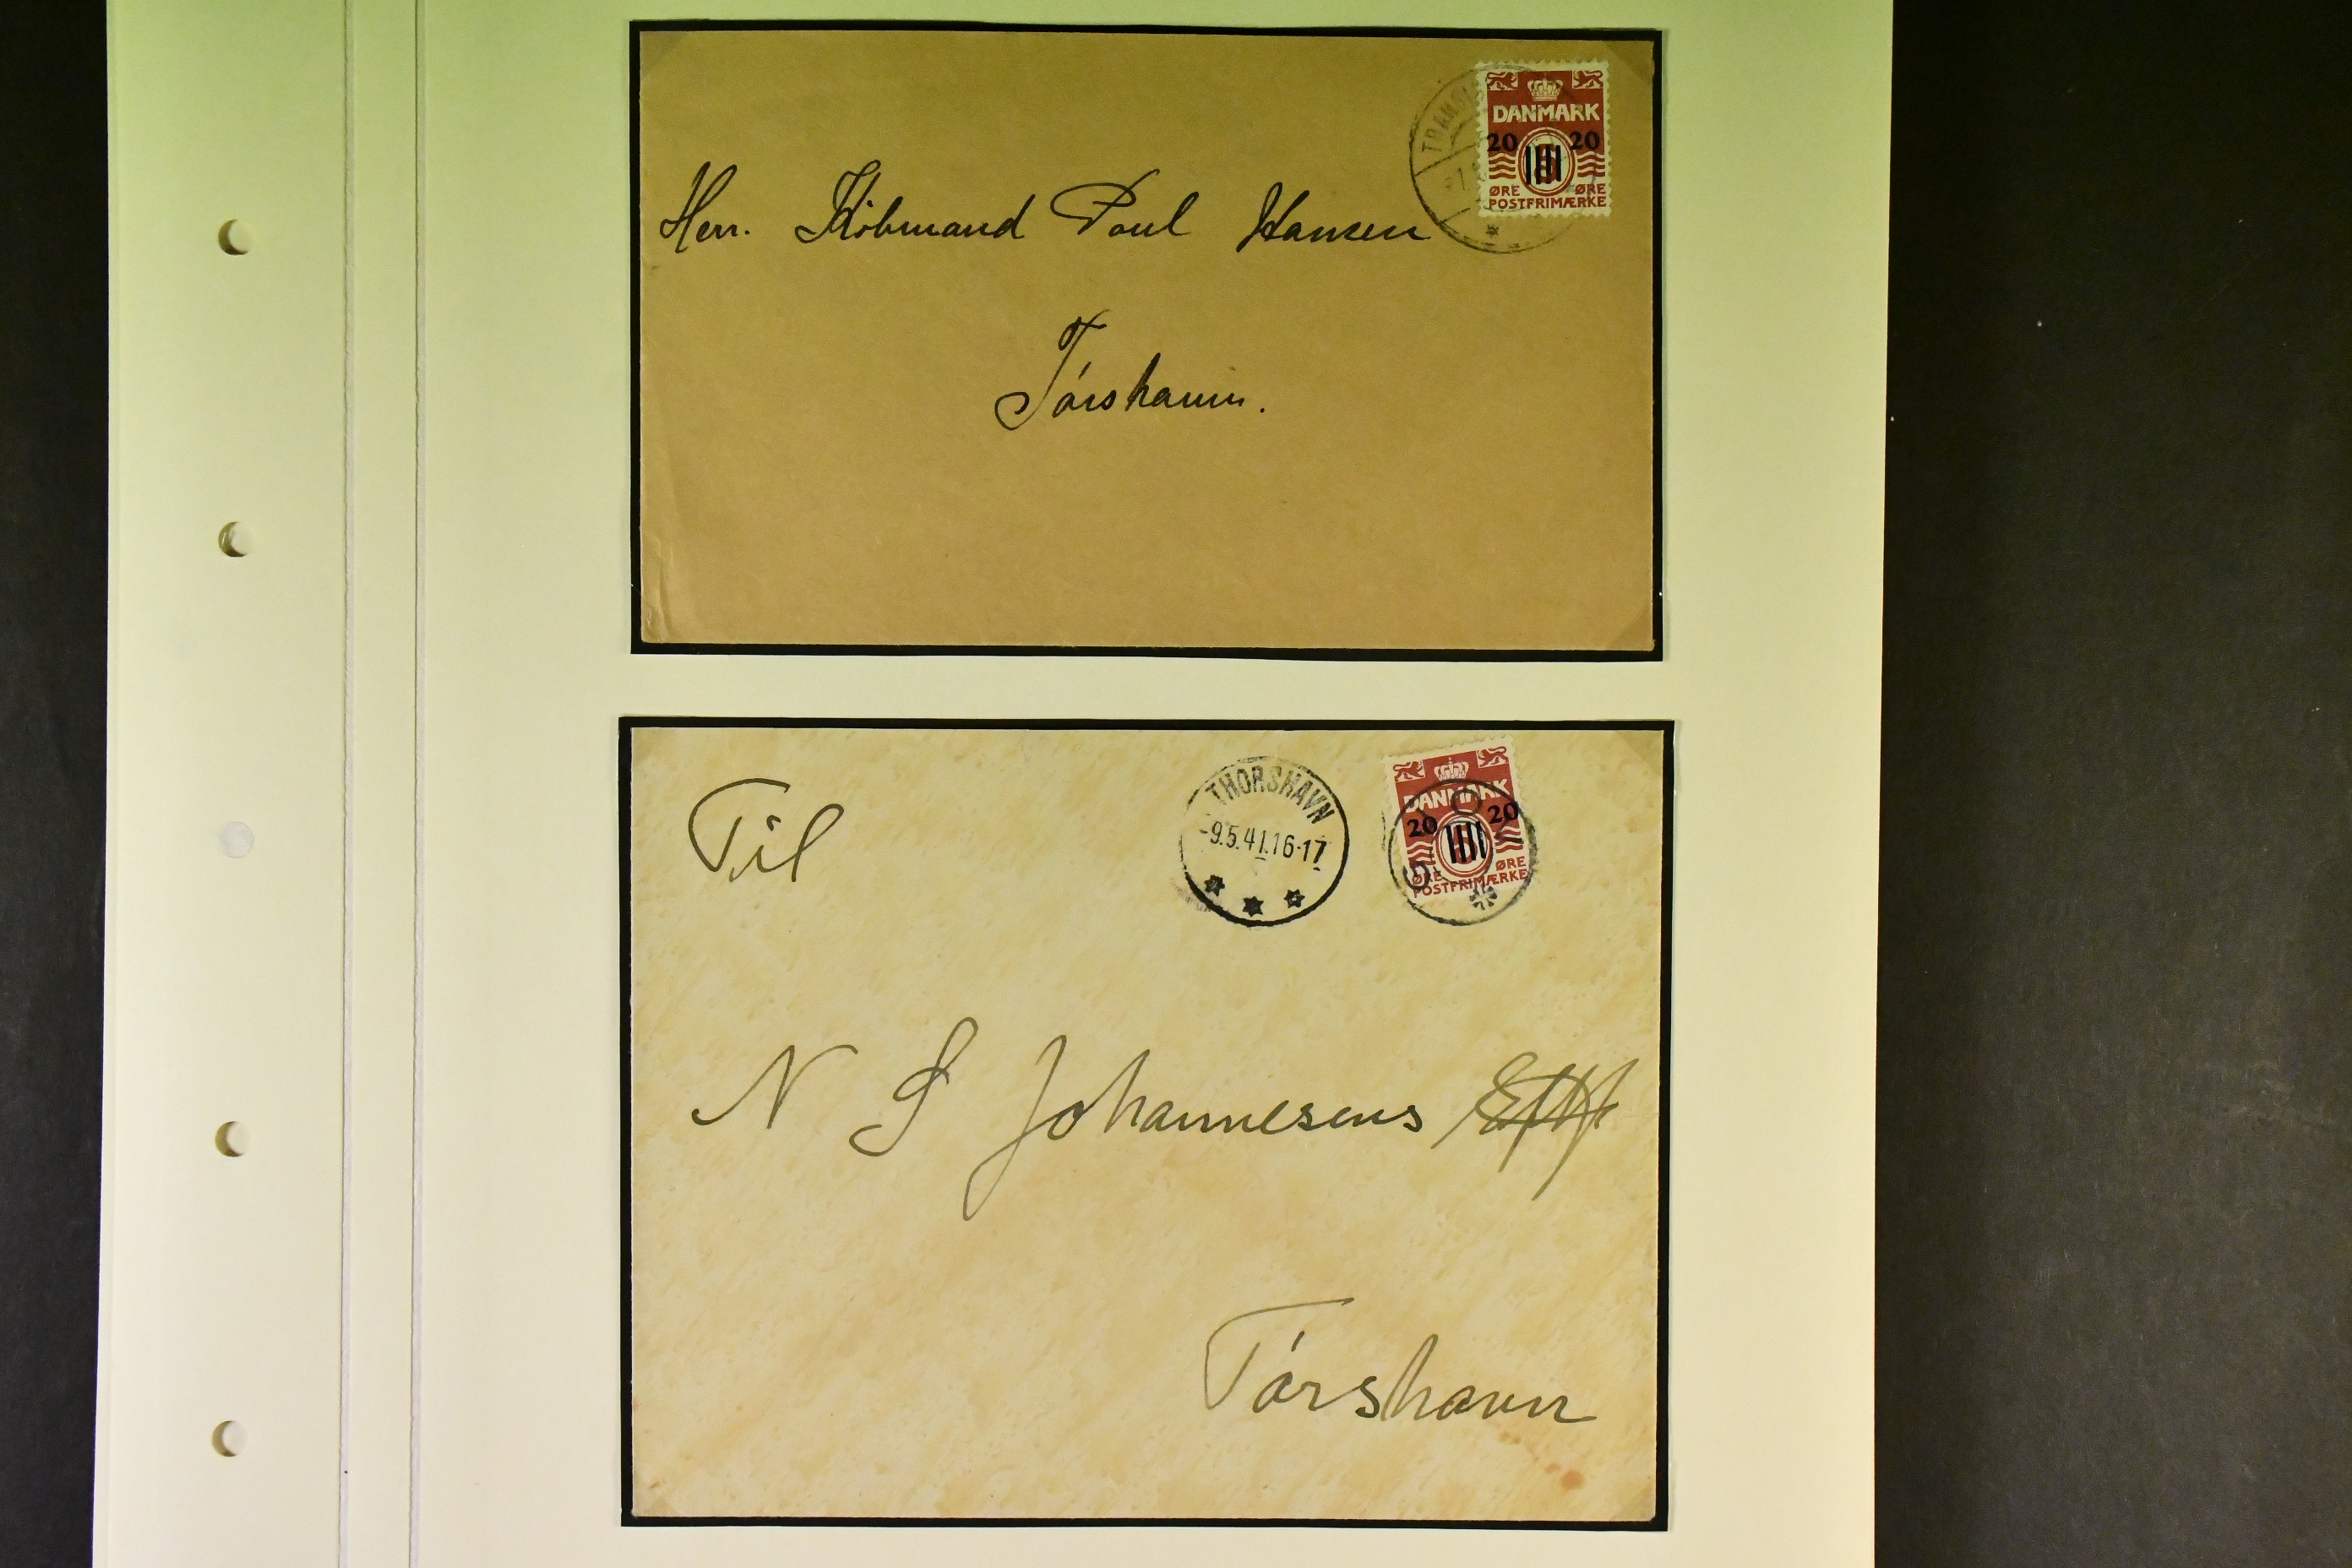 DANMARK
20 20
ØRE ØRE
POSTFRIMÆRKE
Herr. Köbmand Poul Hansen
Tórshavn.
THORSHAVN
-9.5.41.16-17
DANMARK
20 20
ØRE ØRE
POSTFRIMÆRKE
Til
N S Johannesens Eftf
Tórshavn